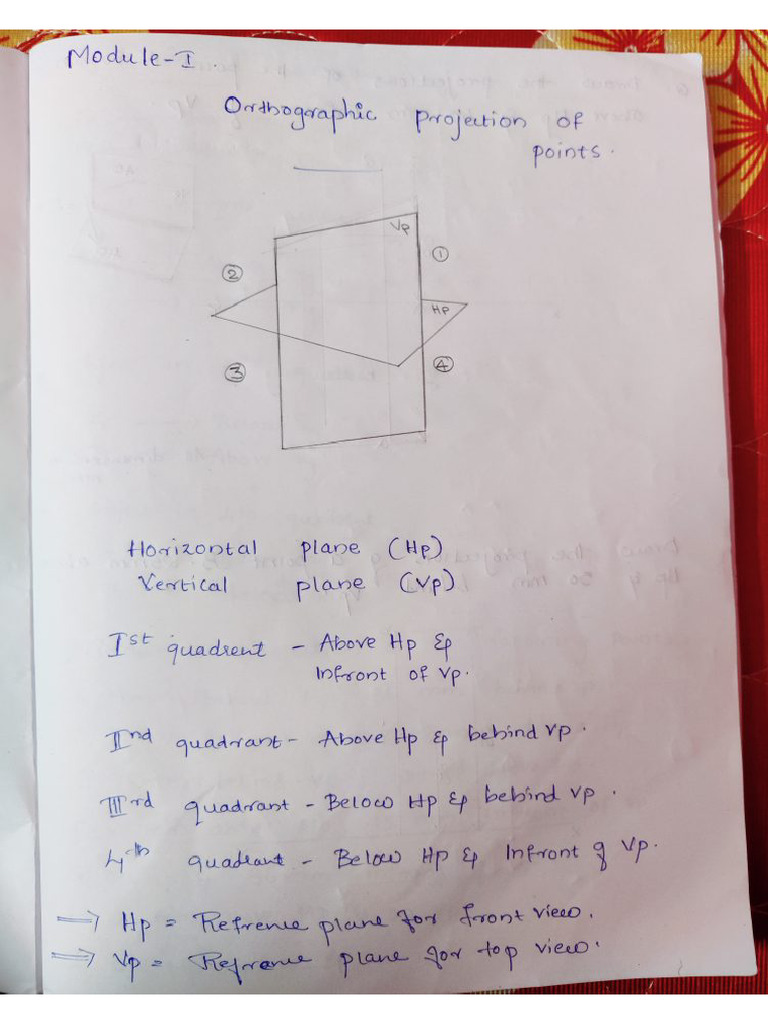 Module-I.
Orthographic projection of
points.
Vp
①
②
Hp
③
④
Horizontal plane (Hp)
Vertical plane (Vp)
Ist quadrent - Above Hp &
Infront of Vp.
IInd quadrant - Above Hp & behind Vp.
IIIrd quadrant - Below Hp & behind Vp.
4th quadrant - Below Hp & Infront of Vp.
⇒ Hp = Refrence plane for front view.
⇒ Vp = Refrance plane for top view.